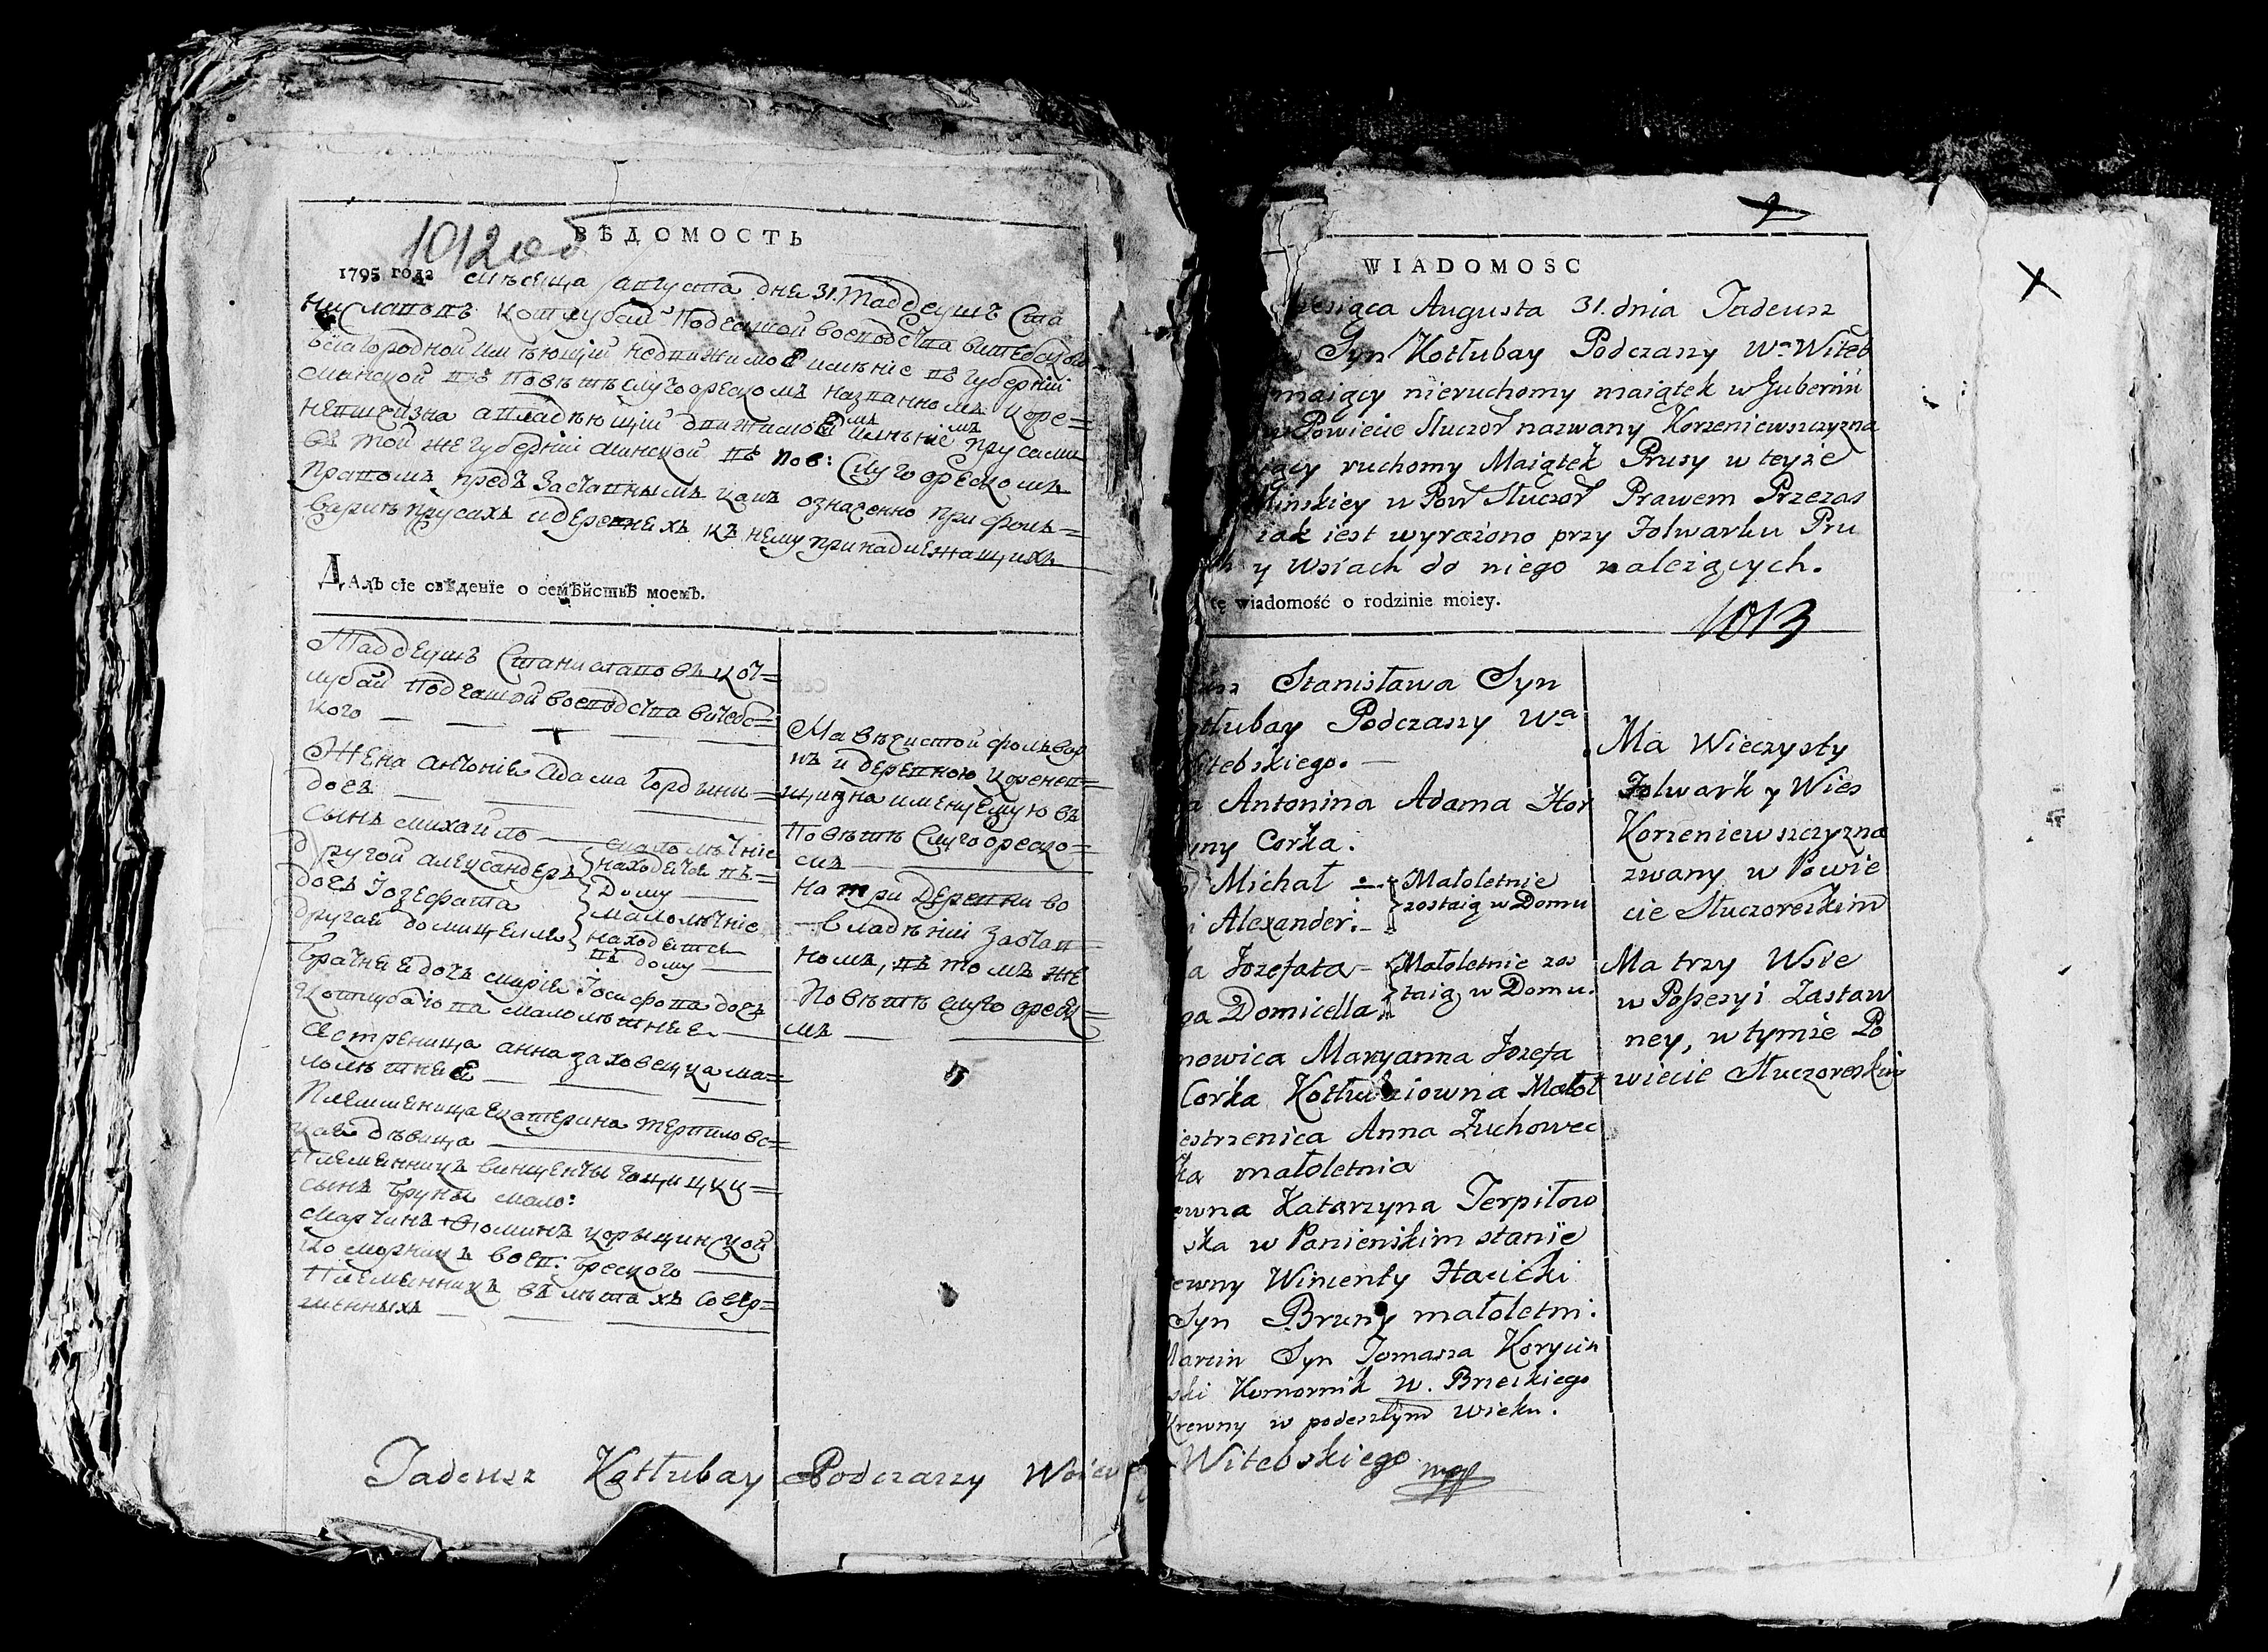 1012 об
ВѢДОМОСТЬ
1795 года мѣсяца августа дня 31. Таддеушъ Ста
ниславовъ Котлубай Подчашой воеводства витебского
благородной имѣющій недвижимое имѣніе въ губерніи
минской въ повѣтѣ случорескомъ названномъ коре=
невщизна а владѣющій движимоемъ имѣніемъ прусами
въ той же губерніи минской въ пов: Случорескомъ
правомъ предъ заставнымъ какъ означенно при фоль=
варкѣ прусахъ и деревнехъ къ нему принадлежащихъ
ДАлъ сїе свѣденїе о семѣйствѣ моемъ.
Таддеушъ Станиславовъ Кот=
лубай Подчашой воеводства витебс=
кого
Жена антонія адама гордыни=
дочь
Сынъ михайло малолѣтніе
другой александеръ находятся въ=
Дому
дочь Іозефата малолѣтніе
другая домицелля находятся
въ дому
братнея дочь марія Іосифова дочь
Котлубаювна малолѣтнея
Сестреница анна заховецка ма=
лолѣтнея
Племменица екатерина терпиловс=
кая дѣвица
Племенникъ винценты гацицки
сынъ бруны мало:
Марчинъ Фоминъ корыцинской
коморникъ воев. бреского
Племенникъ въ лѣтахъ совер=
шенныхъ
Ма вѣчистой фольвар
къ и деревнюю коренев=
щизна именуемую въ
Повѣтѣ Случореско=
мъ
на три деревни во
владѣніи застав=
номъ, въ томъ же
Повѣтѣ случореск=
мъ
Tadeusz Kotłubay Podczaszy Woiew
WIADOMOSC
Augusta 31. dnia Tadeusz
Syn Kotłubay Podczaszy Wa Witeb
maiący nieruchomy maiątek w Gubernii
w Powiecie Słuczor nazwany Korzeniewszczyzna
ruchomy Maiątek Prusy w teyże
Minskiey w Pow Słuczor Prawem Przezas
iak iest wyrażono przy Folwarku Pru
y Wsiach do niego należących.
tę wiadomość o rodzinie moiey.
1013
Stanisława Syn
Kotłubay Podczaszy Wa
Witebskiego.
Antonina Adama Hor
Corka.
Michał Małoletnie
Alexander zostaią w Domu
Jozefata Małoletnie zos
Domicella taią w Domu.
Maryanna Jozefa
Corka Kotłubaiowna Małot
Anna Zuchowec
ka małoletnia
Katarzyna Terpiłow
ska w Panieńskim stanie
Wincenty Hacicki
Syn Bruny małoletni.
Marcin Syn Tomasza Korycin
ski Komornik W. Brzeskiego
Krewny w podeszłym wieku.
Ma Wieczysty
Folwark y Wies
Korzeniewszczyzna
zwany w Powie
cie Słuczoreskim
Ma trzy Wsie
w Possesyi Zastaw
ney, w tymże Po
wiecie Słuczoreskim
Witebskiego mpp